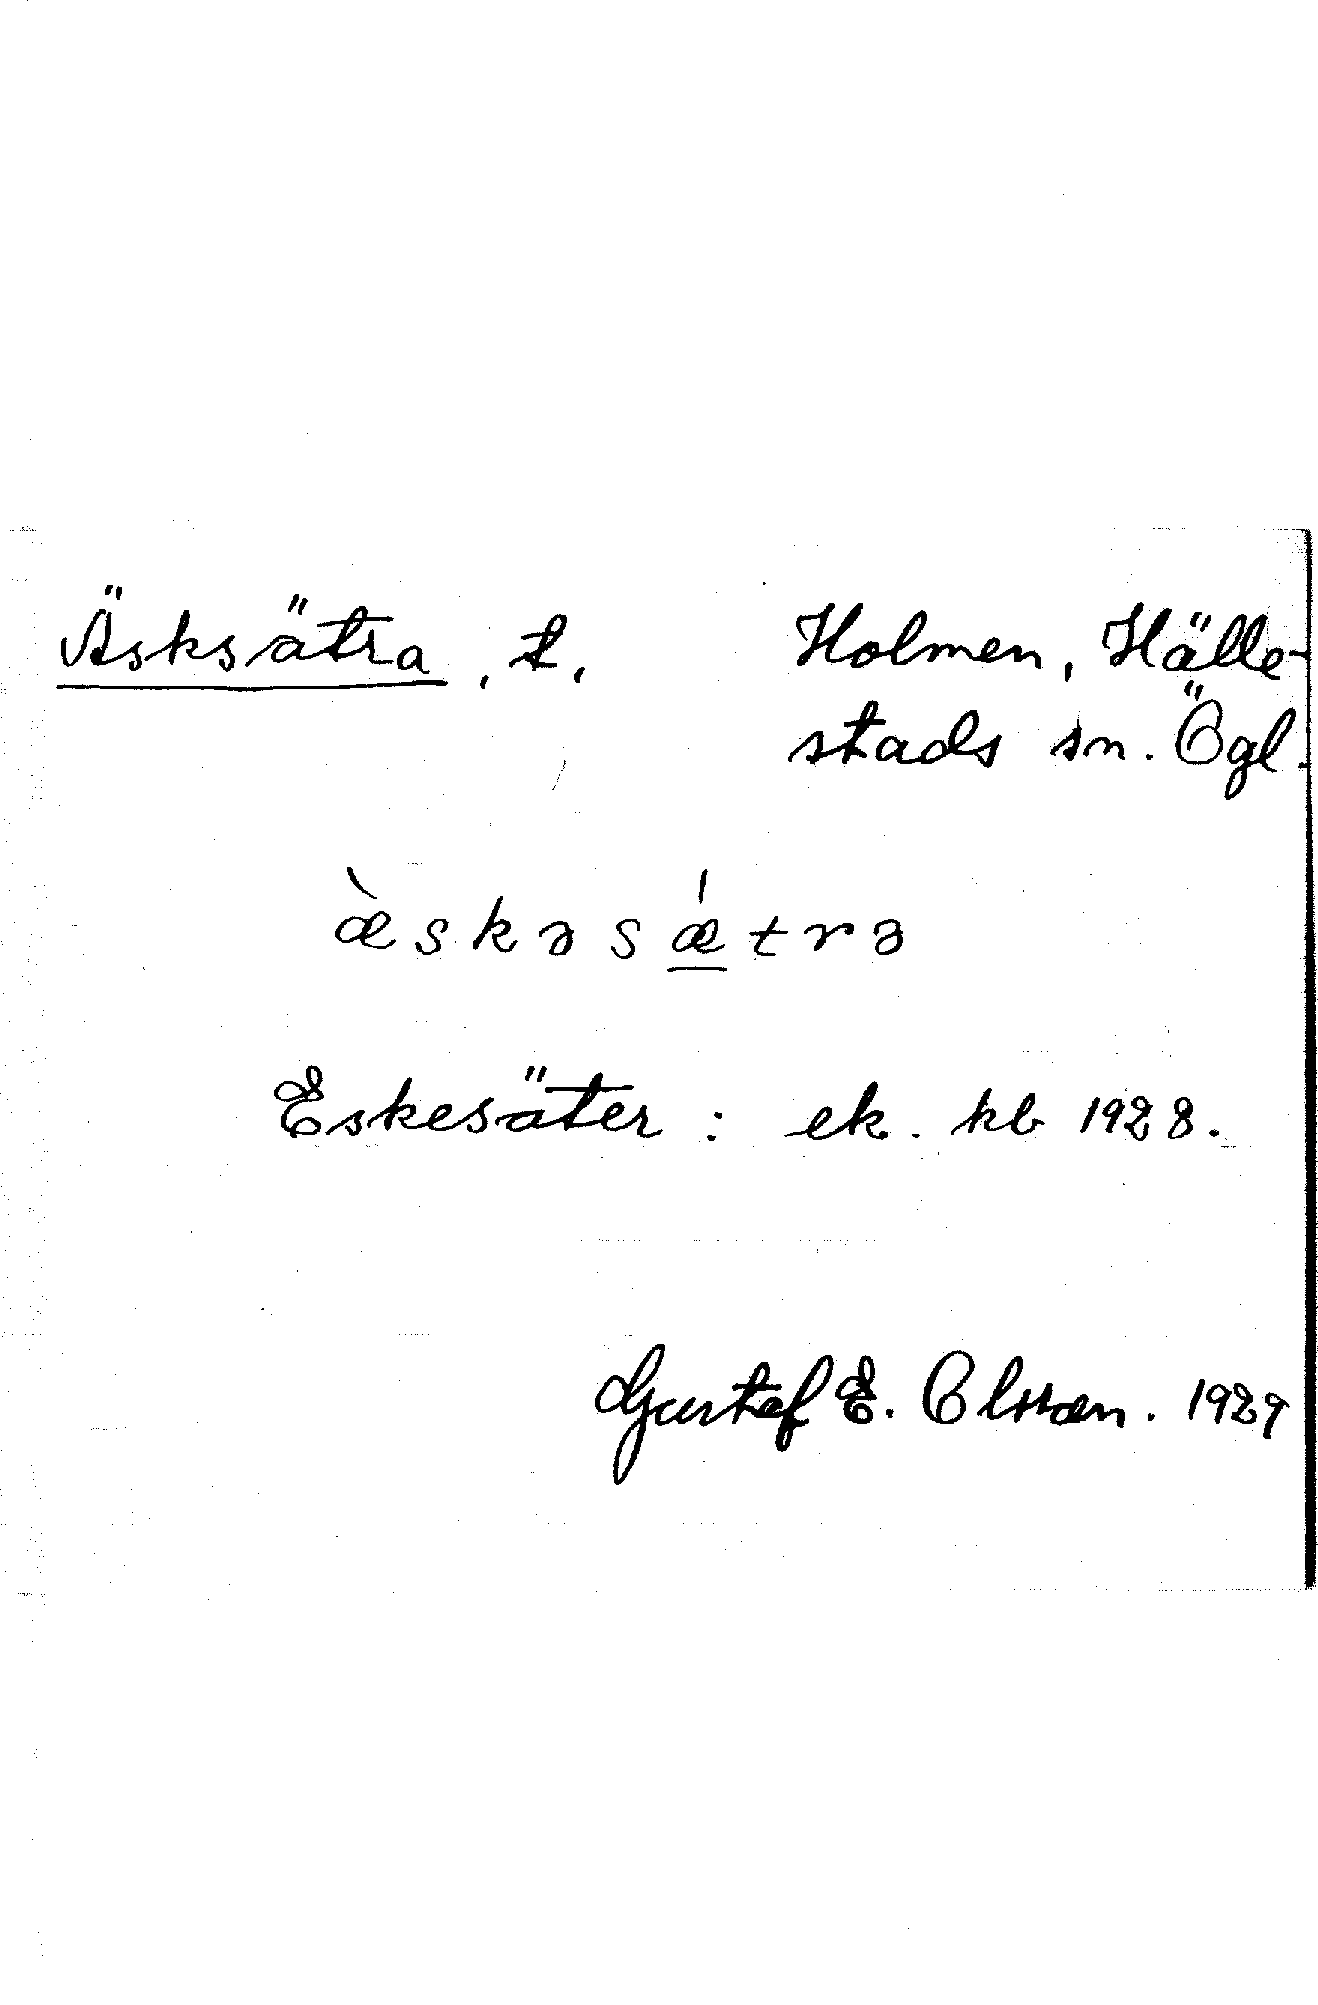 Äsksätra, t. Holmen, Hälle-
stads sn. Ögl.
æ̀skəsǽ̲trə
Eskesäter: ek. kb 1928.
Gustaf E. Olsson. 1929